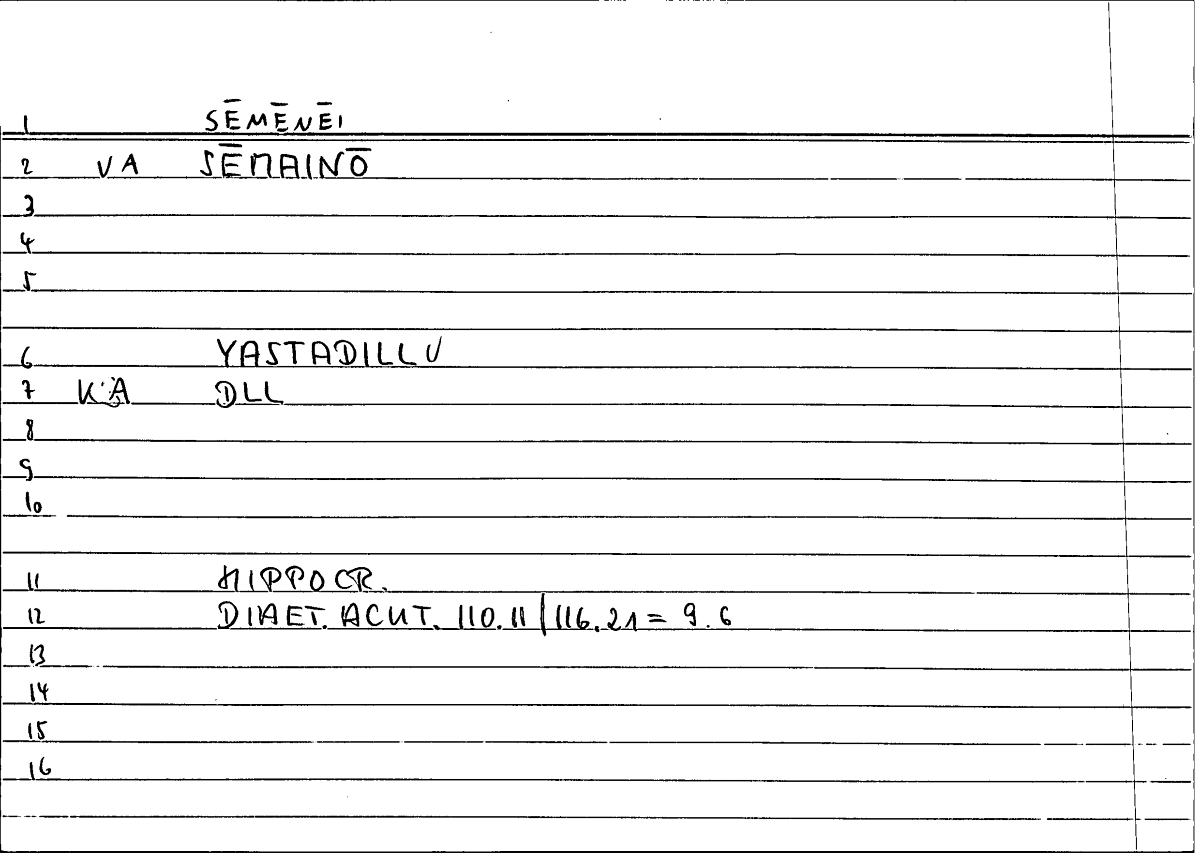 1 SĒMĒNĒI
2 VA SĒMAINŌ
3
4
5
6 YASTADILLU
7 KA DLL
8
9
10
11 HIPPOCR.
12 DIAET. ACUT. 110.11 | 116.21 = 9.6
13
14
15
16